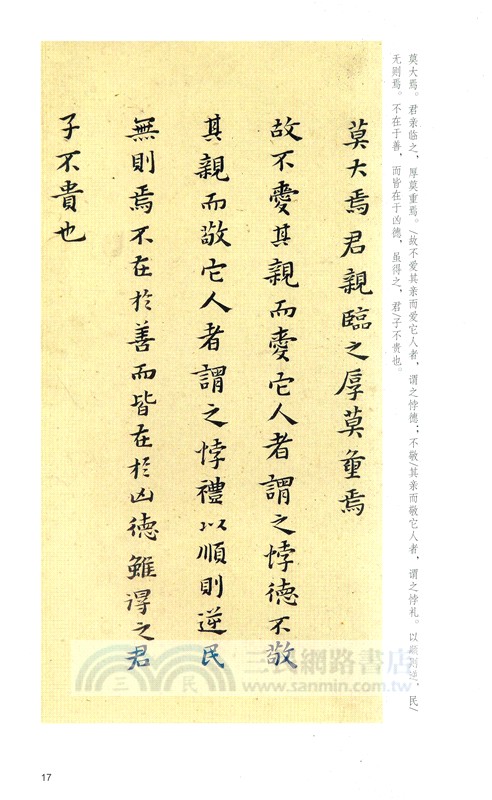 莫大焉。君亲临之，厚莫重焉。/故不爱其亲而爱它人者，谓之悖德；不敬/其亲而敬它人者，谓之悖礼。以顺则逆，民/
无则焉。不在于善，而皆在于凶德，虽得之，君/子不贵也。
莫大焉君親臨之厚莫重焉
故不愛其親而愛它人者謂之悖德不敬
其親而敬它人者謂之悖禮以順則逆民
無則焉不在於善而皆在於凶德雖得之君
子不貴也
三民網路書店
三民
www.sanmin.com.tw
17